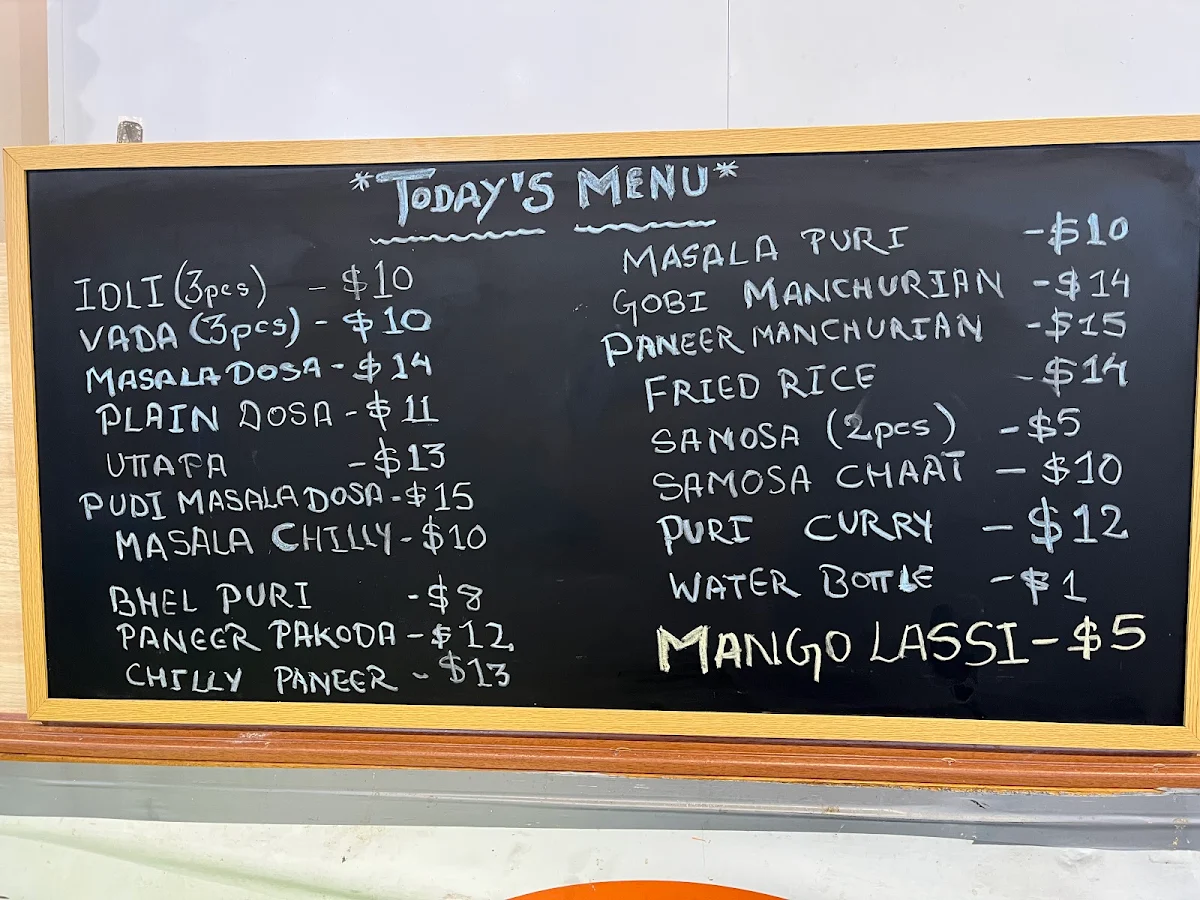 *TODAY'S MENU*
IDLI (3pcs) - $10
VADA (3pcs) - $10
MASALA DOSA - $14
PLAIN DOSA - $11
UTTAPA - $13
PUDI MASALA DOSA - $15
MASALA CHILLY - $10
BHEL PURI - $8
PANEER PAKODA - $12
CHILLY PANEER - $13
MASALA PURI - $10
GOBI MANCHURIAN - $14
PANEER MANCHURIAN - $15
FRIED RICE - $14
SAMOSA (2pcs) - $5
SAMOSA CHAAT - $10
PURI CURRY - $12
WATER BOTTLE - $1
MANGO LASSI - $5